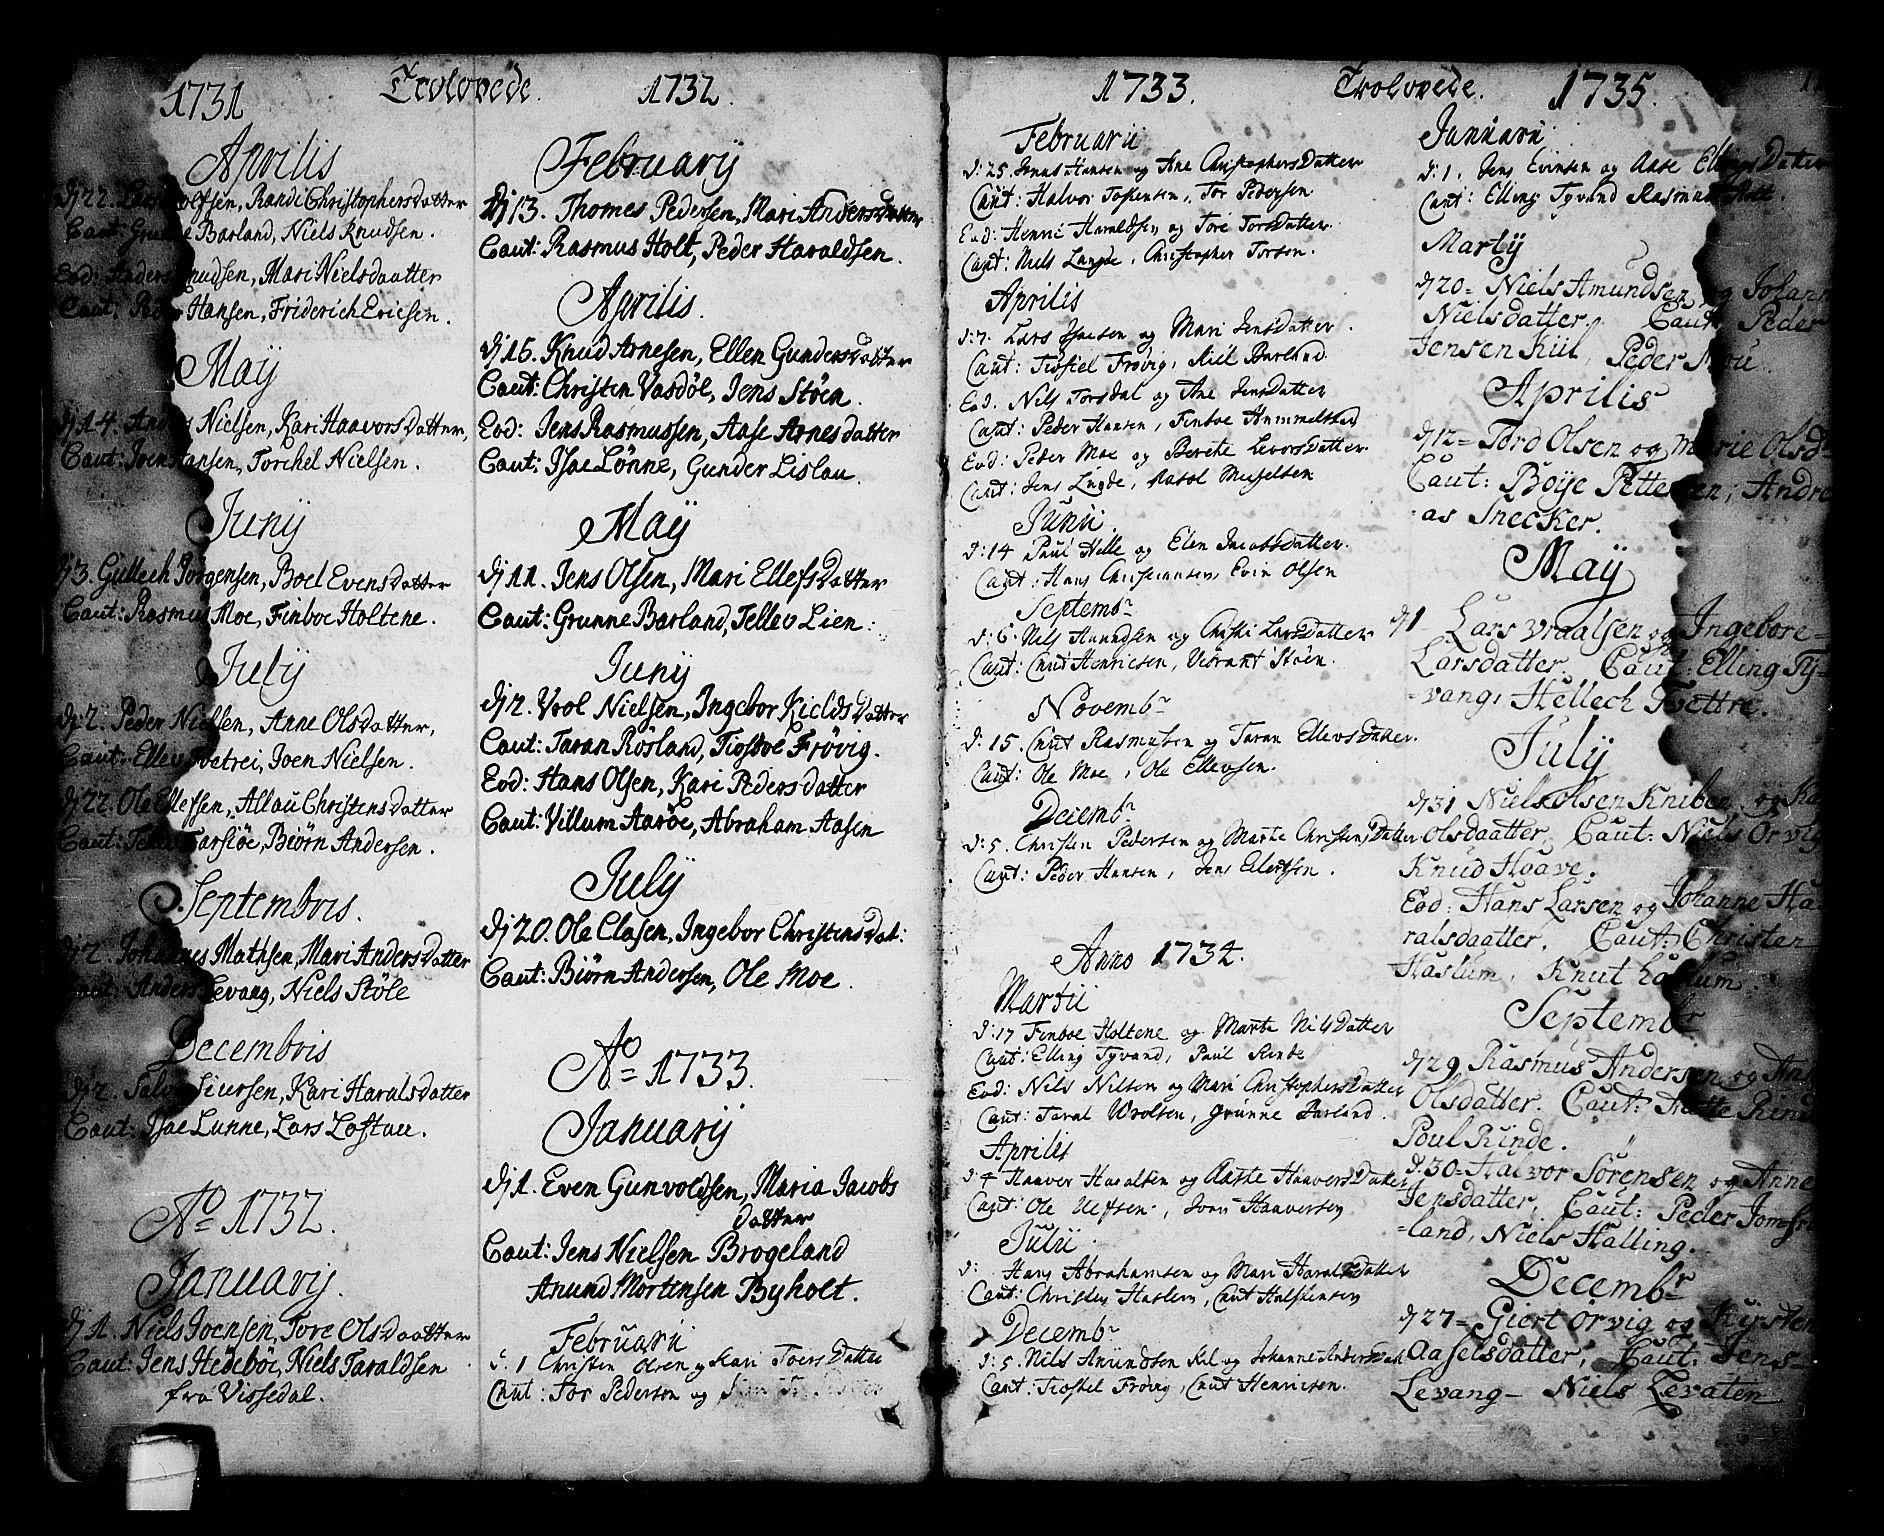 1731 Trolovede. 1732.
Aprilis
dj 22. Randi Christophersdatter
Caut: Barland, Niels Knudsen.
Eod: Anders Knudsen, Mari Nielsdaatter
Caut: Hansen, Friderich Ericsen.
Maij
dj 14. Anders Nielsen, Kari Haavorsdatter,
Caut: Joen Hansen, Torchel Nielsen.
Junij
dj 3. Gullech Jörgensen, Boel Evensdatter
Caut: Rasmus Moe, Finboe Holtene.
Julij
dj 2. Peder Nielsen, Anne Olsdatter,
Caut: Ellev Tvetrei, Joen Nielsen.
dj 22. Ole Ellefsen, Allau Christensdatter
Caut: Biörn Andersen.
Septembris.
dj 2. Johannes Mathsen, Mari Andersdatter
Caut: Anders Levang, Niels Stöle
Decembris
dj 2. Kari Haralsdatter
Caut: Isac Lunne, Lars Loftau.
Ao 1732.
Januarij.
dj 1. Niels Joensen, Tore Olsdaatter
Caut: Jens Hedeböe, Niels Taraldsen
fra Vissedal.
Februarij
dj 13. Thomes Pedersen, Mari Andersdatter
Caut: Rasmus Holt, Peder Haraldsen.
Aprilis.
dj 15. Knud Arnesen, Ellen Gundersdatter
Caut: Christen Vasdöl, Jens Stöen.
Eod: Jens Rasmussen, Aase Arnesdatter
Caut: Isac Lönne, Gunder Lislau.
Maij
dj 11. Jens Olsen, Mari Ellefsdatter
Caut: Grunne Barland, Tellev Lien:
Junij
dj 2. Vrol Nielsen, Ingebor Kieldsdatter
Caut: Taran Rösland, Tiostoe Frövig.
Eod: Hans Olsen, Kari Pedersdatter
Caut: Villum Aaröe, Abraham Aasen
Julij
dj 20. Ole Clasen, Ingebor Christensdat:
Caut: Biörn Andersen, Ole Moe.
Ao 1733.
Januarij
dj 1. Even Gunvoldsen, Maria Jacobs
datter
Caut: Jens Nielsen Brogeland
Anund Mortensen Byholt.
Februarii
d: 1 Christen Olsen og Kari Toersdatter
Caut: Tor Pedersen og
1733. Trolovede. 1735.
Februarii
d: 25 Jens Hansen og Ane Christophersdatter
Caut: Halvor Tostensen, Tor Pedersen
Eod: Henric Haraldsen og Tore Torsdatter
Caut: Niels Langde, Christopher Torsen.
Aprilis
d: 7. Lars Isacsen og Mari Jensdatter.
Caut: Tiostel Frövig, Kiel Barland.
Eod. Nils Torsdal og Ane Jensdatter
Caut: Peder Hansen, Finboe Hummelstad
Eod: Peder Moe og Berete Levorsdatter
Caut: Jens Lingde, Musselsen
Junii.
d: 14 Paul Helle og Elen Jacobsdatter.
Caut: Hans Christiansen, Evin Olsen
Septembr
d: 6. Nils Anundsen og Christi Larsdatter
Caut: Cnud Henricsen, Stöen.
Novembr
d: 15. Cnut Rasmussen og Taran Ellevsdatter.
Caut: Ole Moe, Ole Ellevsen.
Decembr
d: 5. Christen Pedersen og Marte Christensdatter
Caut: Peder Hansen, Jens Eilertsen.
Anno 1734.
Martii
d: 17 Finboe Holtene og Marte Nilsdatter
Caut: Elling Tyvand, Paul Rinde
Eod: Nils Nilsen og Mari Christophersdatter
Caut: Taral Wrolsen, Grunne Barland.
Aprilis
d: 4 Haaver Haralsen og Aaste Haaversdatter
Caut: Ole Ulfsen, Iver Haaversen
Julii
d: Hans Abrahamsen og Mari Haralsdatter
Caut: Christen Haslem, Cnut Halstensen
Decembr
d: 5. Nils Anundsen Kil og Johanne Andersdatt
Caut: Tiostel Frövig, Cnut Henricsen.
Januarii
d: 1. Jens Evinsen og Aase Ellingsdatter
Caut: Elling Tyvand Rasmus Holt.
Martij
dj 20= Niels Amundsen og Johann
Nielsdatter. Caut: Peder
Jensen Kiil, Peder Mou.
Aprilis
dj 12= Tord Olsen og Marie Olsd
Caut: Böije Pettersen, Andre
-as Snecker.
Maij
dj 1 Lars Vraalsen og Ingebore=
Larsdatter. Caut: Elling Ty-
-vang, Hellech Tvettre.
Julij
dj 31 Niels Olsen Kniben, og Ka
Olsdaatter, Caut: Niels Örvig
Knud Hoave.
Eod: Hans Larsen og Johanne Ha
ralsdaatter. Caut: Christen
Haslum, Knut Haslum.
Septembr
dj 29 Rasmus Andersen og An
Olsdatter. Caut: Rind
Poul Rinde.
d. 30= Halvor Sörensen og Anne
Jensdatter, Caut: Peder Jomfru
-land, Niels Halling.
Decembr
dj 27= Giert Örvig og Kirsten
Aaselsdatter, Caut: Jens
Levang- Niels Levaten